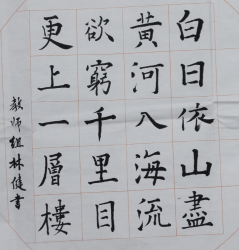 白日依山盡
黃河入海流
欲窮千里目
更上一層樓
教师組林健書